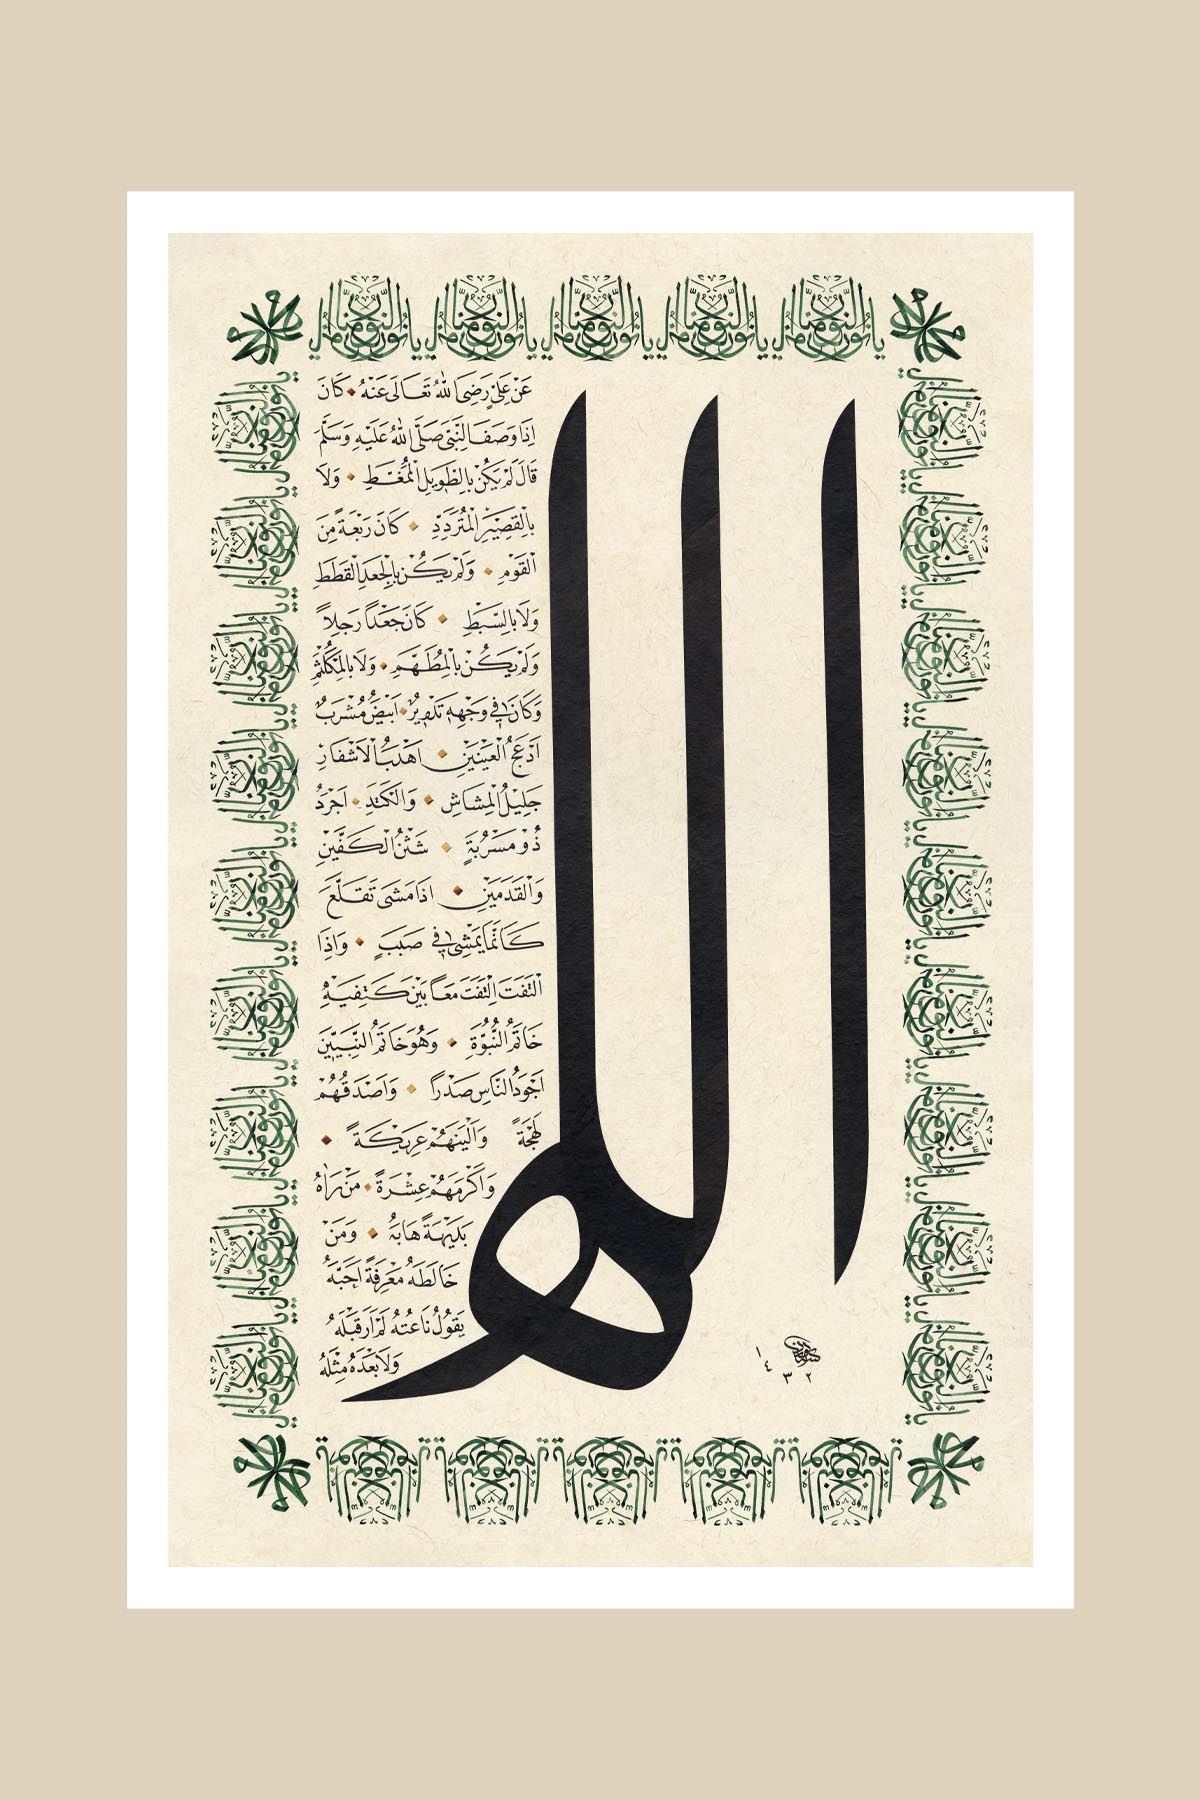 الله
عَنْ عَلِىٍّ رَضِىَ اللهُ تَعَالَى عَنْهُ كَانَ
اِذَا وَصَفَ النَّبِىَّ صَلَّى اللهُ عَلَيْهِ وَسَلَّمَ
قَالَ لَمْ يَكُنْ بِالطَّوِيلِ الْمُمَّغِطِ وَلَا
بِالْقَصِيرِ الْمُتَرَدِّدِ كَانَ رَبْعَةً مِنَ
الْقَوْمِ وَلَمْ يَكُنْ بِالْجَعْدِ الْقَطَطِ
وَلَا بِالسَّبِطِ كَانَ جَعْدًا رَجِلًا
وَلَمْ يَكُنْ بِالْمُطَهَّمِ وَلَا بِالْمُكَلْثَمِ
وَكَانَ فِى وَجْهِهِ تَدْوِيرٌ اَبْيَضُ مُشْرَبٌ
اَدْعَجُ الْعَيْنَيْنِ اَهْدَبُ الْاَشْفَارِ
جَلِيلُ الْمُشَاشِ وَالْكَتَدِ اَجْرَدُ
ذُو مَسْرُبَةٍ شَثْنُ الْكَفَّيْنِ
وَالْقَدَمَيْنِ اِذَا مَشَى تَقَلَّعَ
كَاَنَّمَا يَمْشِى فِى صَبَبٍ وَاِذَا
الْتَفَتَ اِلْتَفَتَ مَعًا بَيْنَ كَتِفَيْهِ
خَاتَمُ النُّبُوَّةِ وَهُوَ خَاتَمُ النَّبِيِّينَ
اَجْوَدُ النَّاسِ صَدْرًا وَاَصْدَقُهُمْ
لَهْجَةً وَاَلْيَنُهُمْ عَرِيكَةً
وَاَكْرَمُهُمْ عِشْرَةً مَنْ رَاٰهُ
بَدِيهَةً هَابَهُ وَمَنْ
خَالَطَهُ مَعْرِفَةً اَحَبَّهُ
يَقُولُ نَاعِتُهُ لَمْ اَرَ قَبْلَهُ
وَلَا بَعْدَهُ مِثْلَهُ
١٤٣٢